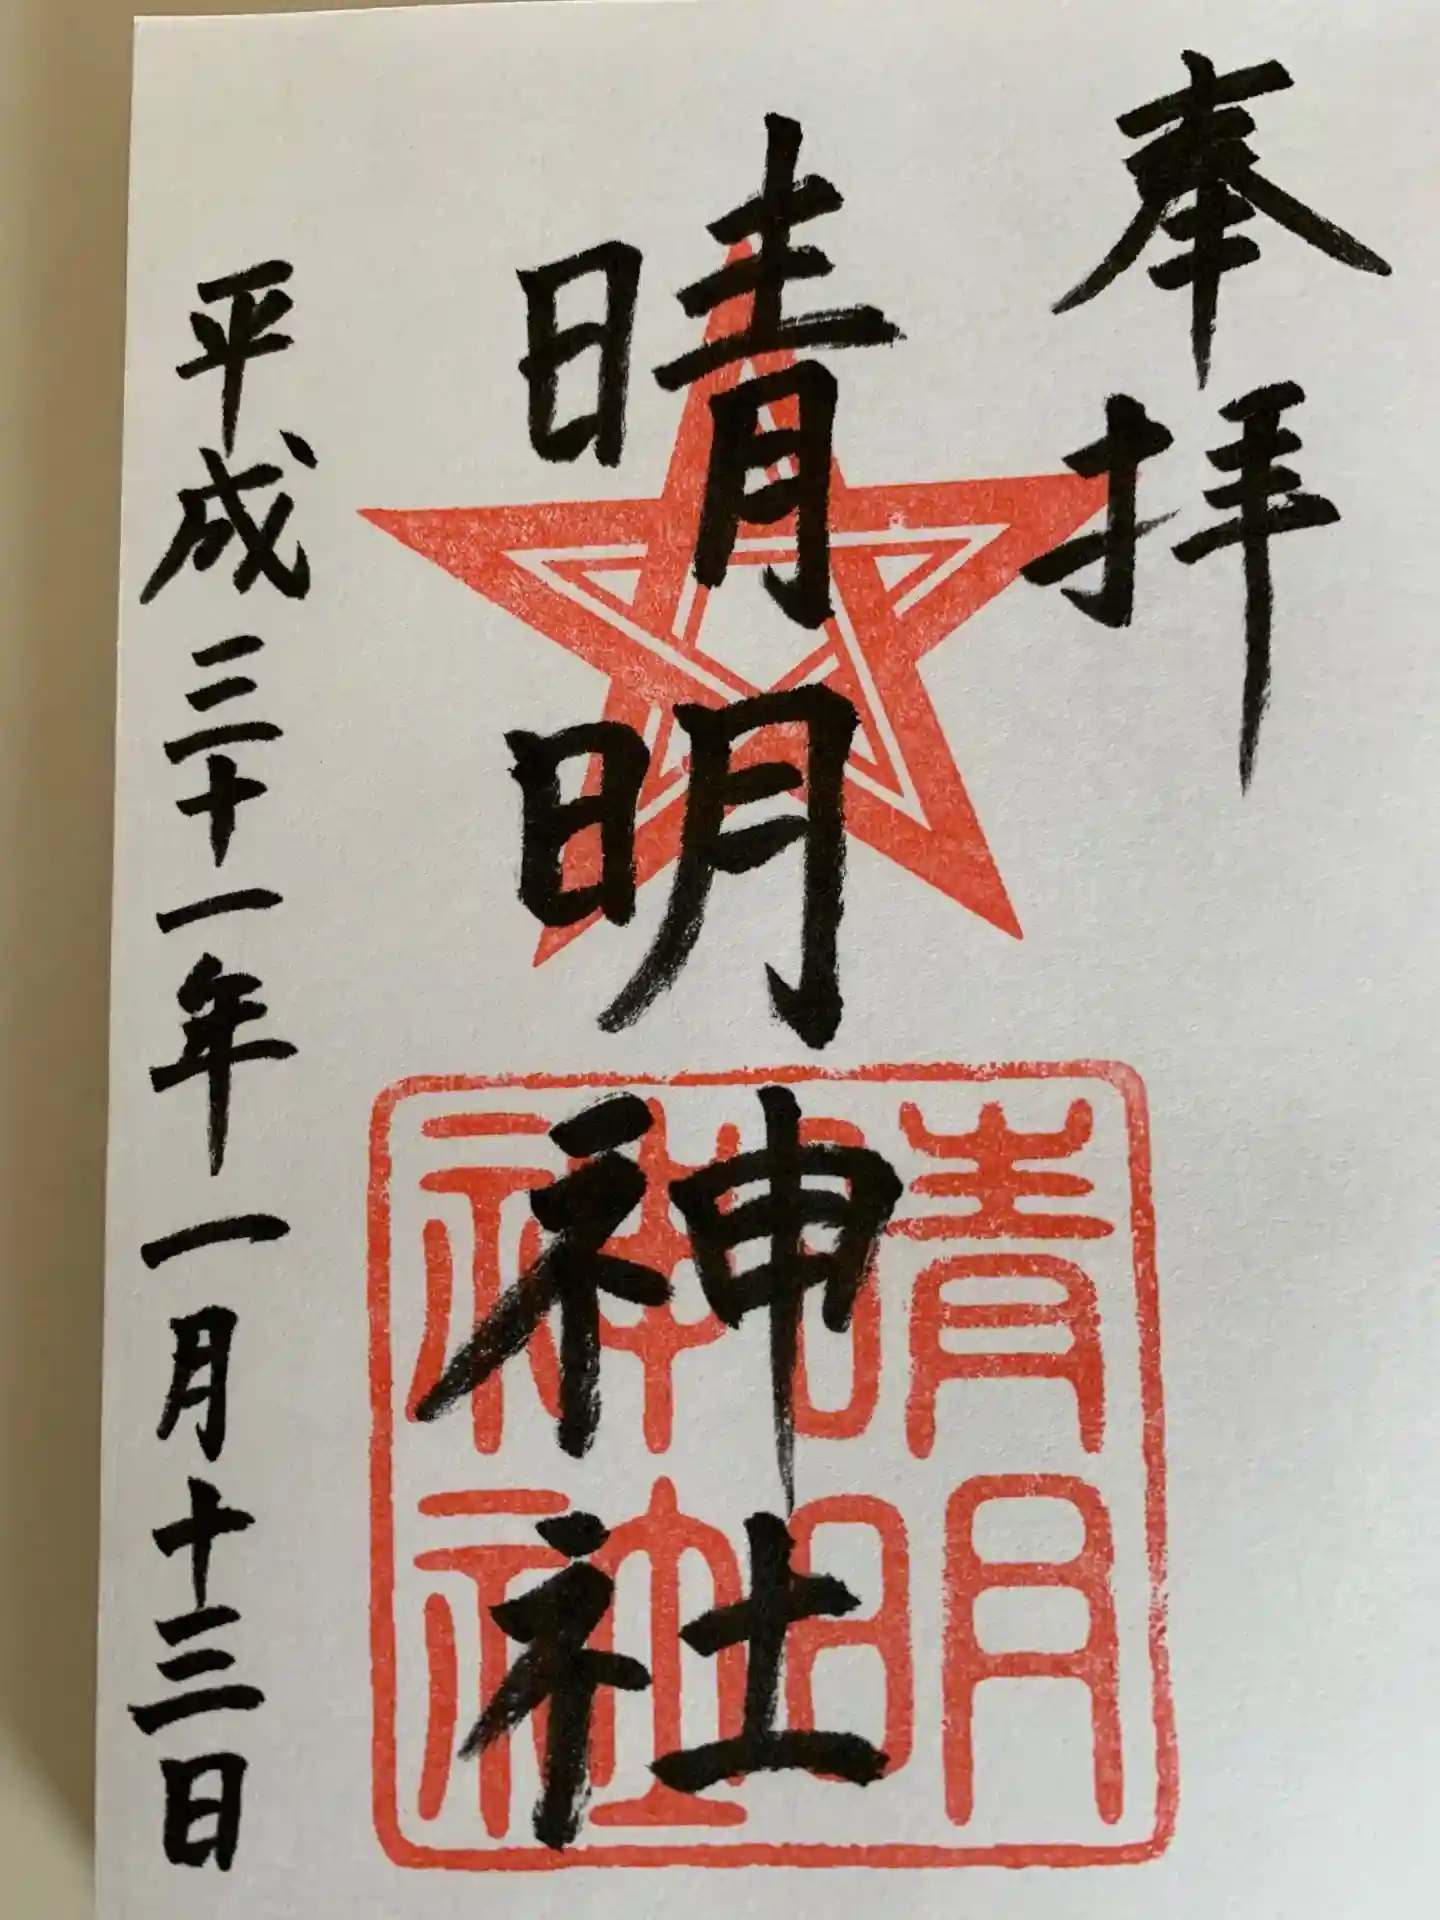 奉拝
晴明神社
晴明神社
平成三十一年一月十三日